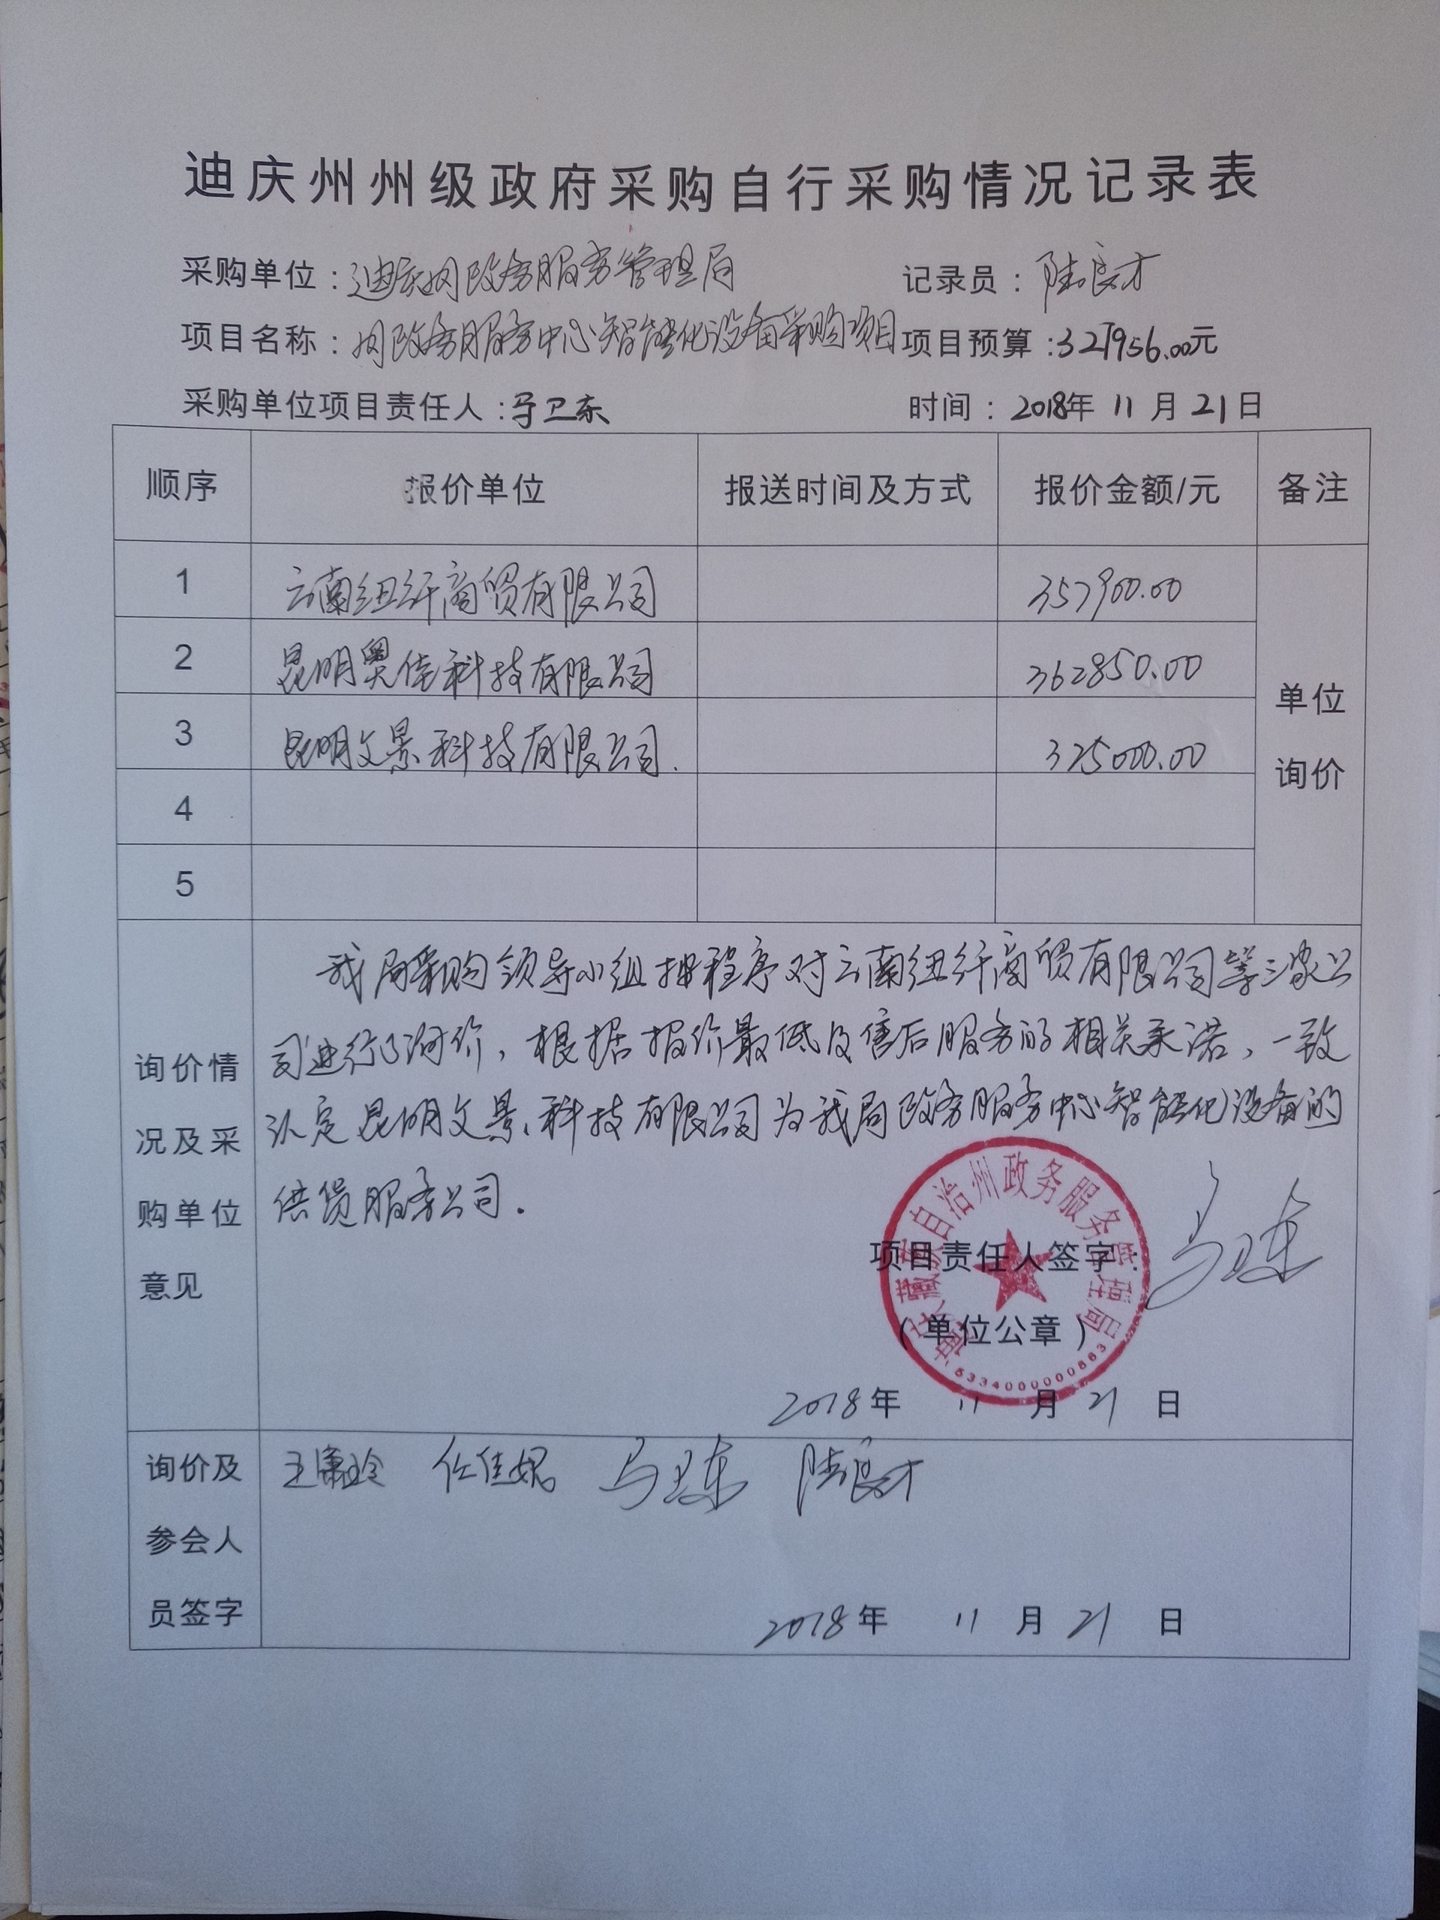 迪庆州州级政府采购自行采购情况记录表
采购单位：迪庆州政务服务管理局 记录员：陆良才
项目名称：州政务服务中心智能化设备采购项目 项目预算：327956.00元
采购单位项目责任人：马卫东 时间：2018年 11 月 21 日
顺序 报价单位 报送时间及方式 报价金额/元 备注
1 云南纽纤商贸有限公司 357900.00
2 昆明奥佳科技有限公司 362850.00
3 昆明文景科技有限公司. 325000.00
4
5
单位
询价
询价情
况及采
购单位
意见
我局采购领导小组按程序对云南纽纤商贸有限公司等三家公
司进行了询价，根据报价最低及售后服务的相关承诺，一致
认定昆明文景科技有限公司为我局政务服务中心智能化设备的
供货服务公司.
项目责任人签字： 马卫东
（单位公章）
迪庆藏族自治州政务服务管理局
2018 年 11 月 21 日
询价及
参会人
员签字
任佳妮 马卫东 陆良才
2018 年 11 月 21 日